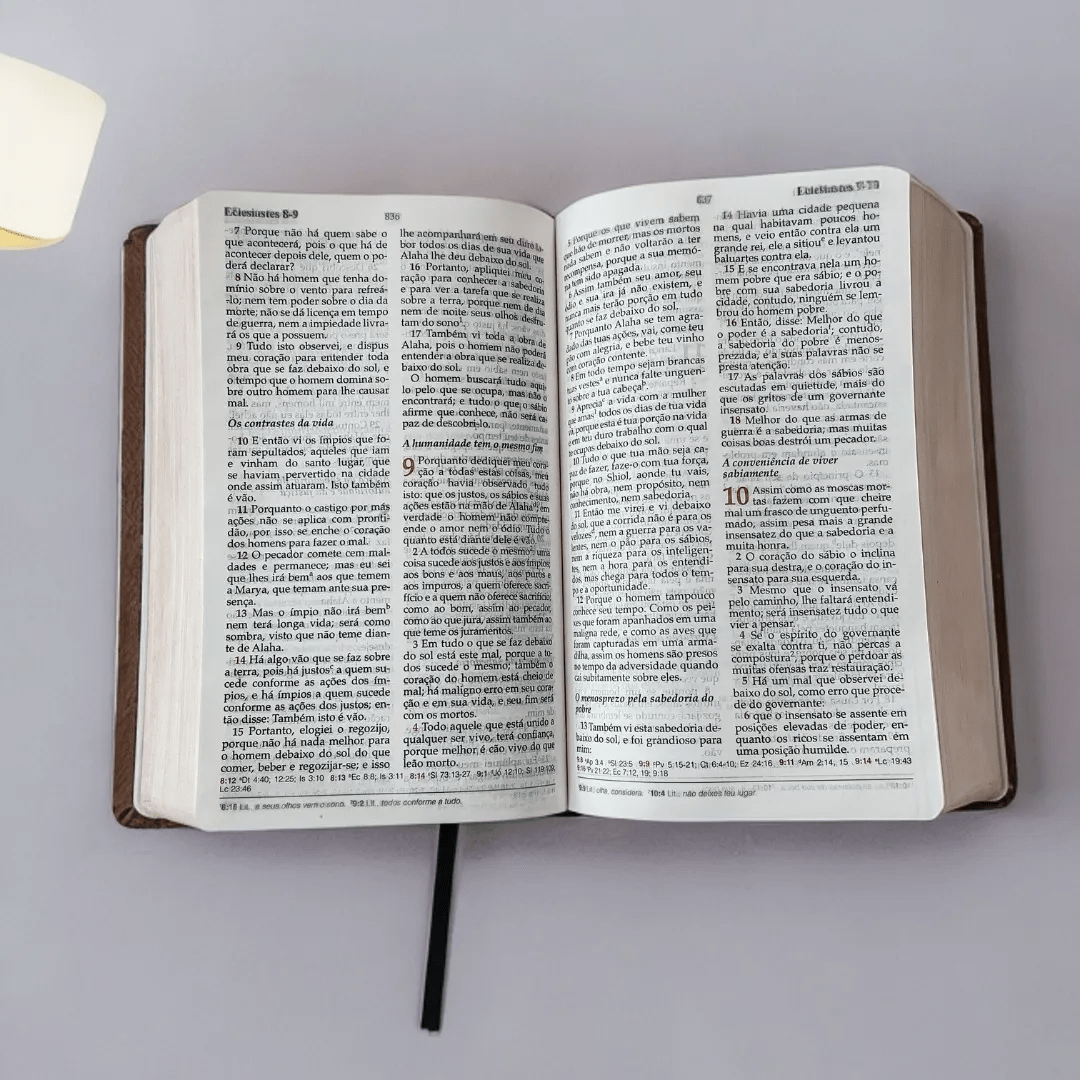 Eclesiastes 8-9
836
7 Porque não há quem sabe o
que acontecerá, pois o que há de
acontecer depois dele, quem o po-
derá declarar?
8 Não há homem que tenha do-
mínio sobre o vento para refreá-
-lo; nem tem poder sobre o dia da
morte; não se dá licença em tempo
de guerra, nem a impiedade livra-
rá os que a possuem.
9 Tudo isto observei, e dispus
meu coração para entender toda
obra que se faz debaixo do sol, e
o tempo que o homem domina so-
bre outro homem para lhe causar
mal.
Os contrastes da vida
10 E então vi os ímpios que fo-
ram sepultados, aqueles que iam
e vinham do santo lugar, que
se haviam pervertido na cidade
onde assim atuaram. Isto também
é vão.
11 Porquanto o castigo por más
ações não se aplica com pronti-
dão, por isso se enche o coração
dos homens para fazer o mal.
12 O pecador comete cem mal-
dades e permanece; mas eu sei
que lhes irá bemᵃ aos que temem
a Marya, que temam ante sua pre-
sença.
13 Mas o ímpio não irá bemᵇ
nem terá longa vida; será como
sombra, visto que não teme dian-
te de Alaha.
14 Há algo vão que se faz sobre
a terra, pois há justosᶜ a quem su-
cede conforme as ações dos ím-
pios, e há ímpios a quem sucede
conforme as ações dos justos; en-
tão disse: Também isto é vão.
15 Portanto, elogiei o regozijo,
porque não há nada melhor para
o homem debaixo do sol do que
comer, beber e regozijar-se; e isso
lhe acompanhará em seu duro la-
bor todos os dias de sua vida que
Alaha lhe deu debaixo do sol.
16 Portanto, apliquei meu co-
ração para conhecer a sabedoria
e para ver a tarefa que se realiza
sobre a terra, porque nem de dia
nem de noite seus olhos desfru-
tam do sono¹.
17 Também vi toda a obra de
Alaha, pois o homem não poderá
entender a obra que se realiza de-
baixo do sol.
O homem buscará tudo aqui-
lo pelo que se ocupa, mas não o
encontrará; e tudo o que o sábio
afirme que conhece, não será ca-
paz de descobri-lo.
A humanidade tem o mesmo fim
9 Porquanto dediquei meu cora-
ção a todas estas coisas, meu
coração havia observado tudo
isto: que os justos, os sábios e suas
ações estão na mão de Alahaᵈ; em
verdade o homem não compre-
ende o amor nem o ódio. Tudo o
quanto está diante dele é vão.
2 A todos sucede o mesmo²; uma
coisa sucede aos justos e aos ímpios;
aos bons e aos maus, aos puros e
aos impuros, a quem oferece sacri-
fício e a quem não oferece sacrifício,
como ao bom, assim ao pecador,
como ao que jura, assim também ao
que teme os juramentos.
3 Em tudo o que se faz debaixo
do sol está este mal, porque a to-
dos sucede o mesmo; também o
coração do homem está cheio de
mal; há maligno erro em seu cora-
ção e em sua vida, e seu fim será
com os mortos.
4 Todo aquele que está unido a
qualquer ser vivo, terá confiança,
porque melhor é cão vivo do que
leão morto.
8:12 ᵃDt 4:40; 12:25; Is 3:10 8:13 ᵇEc 8:8; Is 3:11 8:14 ᶜSl 73:13-27 9:1 ᵈJó 12:10; Sl 119:109;
Lc 23:46
¹8:16 Lit., a seus olhos vem o sono. ²9:2 Lit., todos conforme a tudo.
637
5 Porque os que vivem sabem
que hão de morrer, mas os mortos
nada sabem e não voltarão a ter
recompensa, porque a sua memó-
ria tem sido apagada.
6 Assim também seu amor, seu
ódio e sua ira já não existem, e
nunca mais terão porção em tudo
quanto se faz debaixo do sol.
7 Porquanto Alaha se tem agra-
dado das tuas ações, vai, come teu
pão com alegria, e bebe teu vinho
com coração contente.
8 Em todo tempo sejam brancas
tuas vestesᵃ e nunca falte unguen-
to sobre a tua cabeçaᵇ.
9 Aprecia³ a vida com a mulher
que amasᶜ todos os dias de tua vida
vã, porque esta é tua porção na vida
e em teu duro trabalho com o qual
te ocupas debaixo do sol.
10 Tudo o que tua mão seja ca-
paz de fazer, faze-o com tua força,
porque no Shiol, aonde tu vais,
não há obra, nem propósito, nem
conhecimento, nem sabedoria.
11 Então me virei e vi debaixo
do sol, que a corrida não é para os
velozesᵈ, nem a guerra para os va-
lentes, nem o pão para os sábios,
nem a riqueza para os inteligen-
tes, nem a hora para os entendi-
dos, mas chega para todos o tem-
po e a oportunidade.
12 Porque o homem tampouco
conhece seu tempo. Como os pei-
xes que foram apanhados em uma
maligna rede, e como as aves que
foram capturadas em uma arma-
dilha, assim os homens são presos
no tempo da adversidade quando
cai subitamente sobre eles.
O menosprezo pela sabedoria do
pobre
13 Também vi esta sabedoria de-
baixo do sol, e foi grandioso para
mim:
14 Havia uma cidade pequena
na qual habitavam poucos ho-
mens, e veio então contra ela um
grande rei, ele a sitiouᵉ e levantou
baluartes contra ela.
15 E se encontrava nela um ho-
mem pobre que era sábio; e o po-
bre com sua sabedoria livrou a
cidade, contudo, ninguém se lem-
brou do homem pobre.
16 Então, disse: Melhor do que
o poder é a sabedoriaᶠ; contudo,
a sabedoria do pobre é menos-
prezada, e a suas palavras não se
presta atenção.
17 As palavras dos sábios são
escutadas em quietude, mais do
que os gritos de um governante
insensato.
18 Melhor do que as armas de
guerra é a sabedoria; mas muitas
coisas boas destrói um pecador.
A conveniência de viver
sabiamente
10 Assim como as moscas mor-
tas fazem com que cheire
mal um frasco de unguento perfu-
mado, assim pesa mais a grande
insensatez do que a sabedoria e a
muita honra.
2 O coração do sábio o inclina
para sua destra, e o coração do in-
sensato para sua esquerda.
3 Mesmo que o insensato vá
pelo caminho, lhe faltará entendi-
mento; será insensatez tudo o que
vier a pensar.
4 Se o espírito do governante
se exalta contra ti, não percas a
compostura⁴, porque o perdoar as
muitas ofensas traz restauração.
5 Há um mal que observei de-
baixo do sol, como erro que proce-
de do governante:
6 que o insensato se assente em
posições elevadas de poder, en-
quanto os ricos se assentam em
uma posição humilde.
9:8 ᵃAp 3:4 ᵇSl 23:5 9:9 ᶜPv 5:15-21; Ct 6:4-10; Ez 24:16 9:11 ᵈAm 2:14, 15 9:14 ᵉLc 19:43
9:16 ᶠPv 21:22; Ec 7:12, 19; 9:18
³9:9 Lit., olha, considera. ⁴10:4 Lit., não deixes teu lugar.